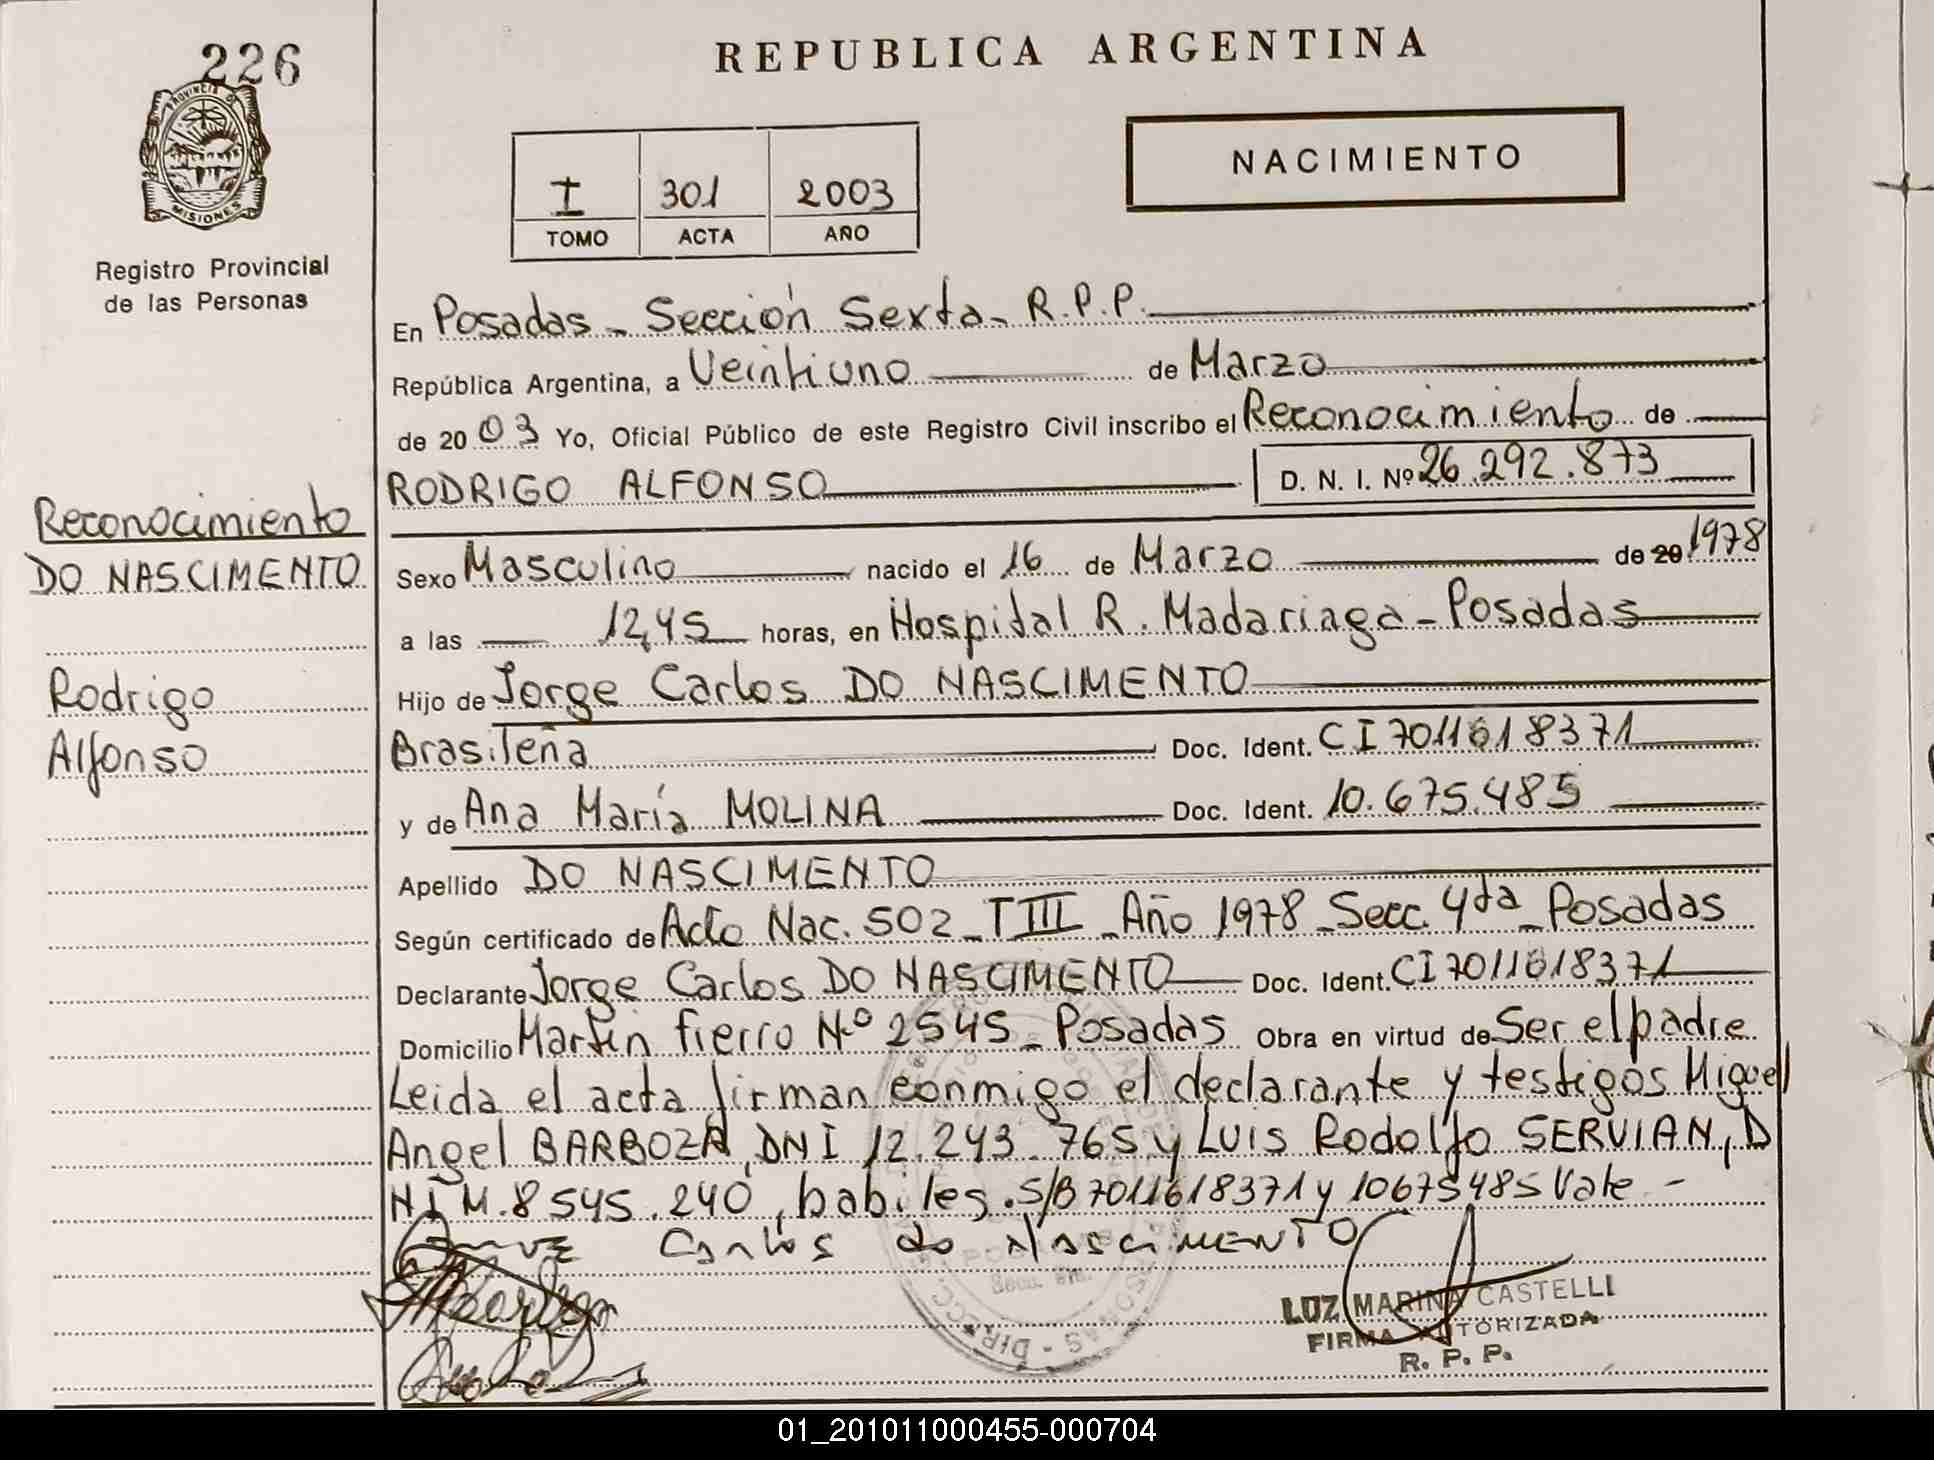 226
PROVINCIA DE
MISIONES
Registro Provincial
de las Personas
REPUBLICA ARGENTINA
I 301 2003
TOMO ACTA AÑO
NACIMIENTO
En Posadas - Sección Sexta - R.P.P.
República Argentina, a Veintiuno de Marzo
de 2003 Yo, Oficial Público de este Registro Civil inscribo el Reconocimiento de
RODRIGO ALFONSO D. N. I. Nº 26.292.873
Reconocimiento
DO NASCIMENTO
Rodrigo
Alfonso
Sexo Masculino nacido el 16 de Marzo de 20 1978
a las 12,45 horas, en Hospital R. Madariaga - Posadas
Hijo de Jorge Carlos DO NASCIMENTO
Brasileña Doc. Ident. CI 7011618371
y de Ana María MOLINA Doc. Ident. 10.675.485
Apellido DO NASCIMENTO
Según certificado de Acta Nac. 502 - T III - Año 1978 - Secc. 4ta - Posadas
Declarante Jorge Carlos DO NASCIMENTO Doc. Ident. CI 7011618371
Domicilio Martín Fierro Nº 2545 - Posadas Obra en virtud de Ser el padre
Leida el acta firman conmigo el declarante y testigos Miguel
Angel BARBOZA, DNI 12.243.765 y LUIS Rodolfo SERVIAN, D
NI M.8545.240, habiles. S/B 7011618371 y 10675485 Vale -
Carlos do Nascimento
LUZ MARINA CASTELLI
FIRMA AUTORIZADA
R. P. P.
01_201011000455-000704